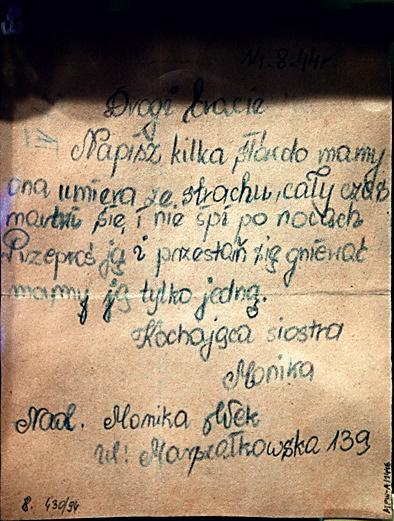 14.8.44r
Drogi bracie
Napisz kilka słów do mamy
ona umiera ze strachu, cały czas
martwi się, i nie śpi po nocach.
Przeproś ją i przestań się gniewać
mamy ją tylko jedną.
Kochająca siostra
Monika
Nad. Monika
ul: Marszałkowska 139
8. 430/94